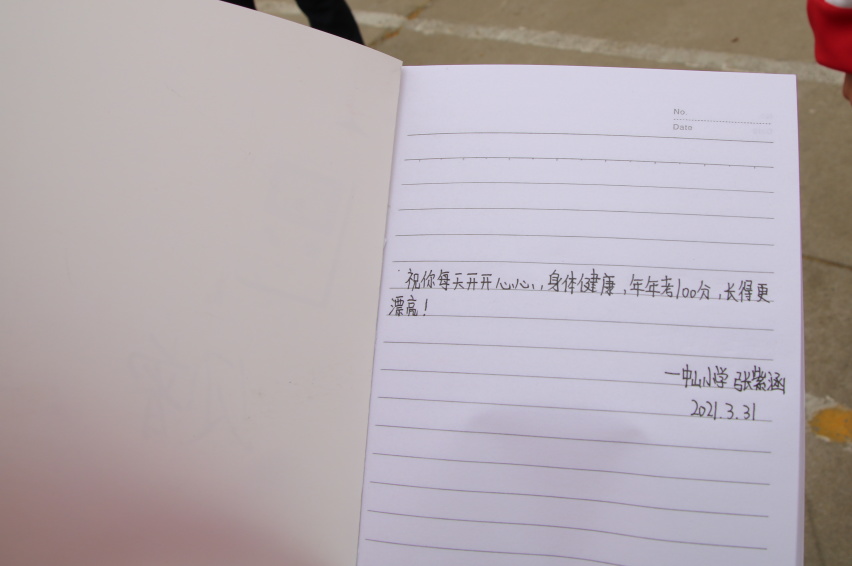 No.
Date
祝你每天开开心心,身体健康,年年考100分,长得更
漂亮!
一中山小学 张紫涵
2021.3.31